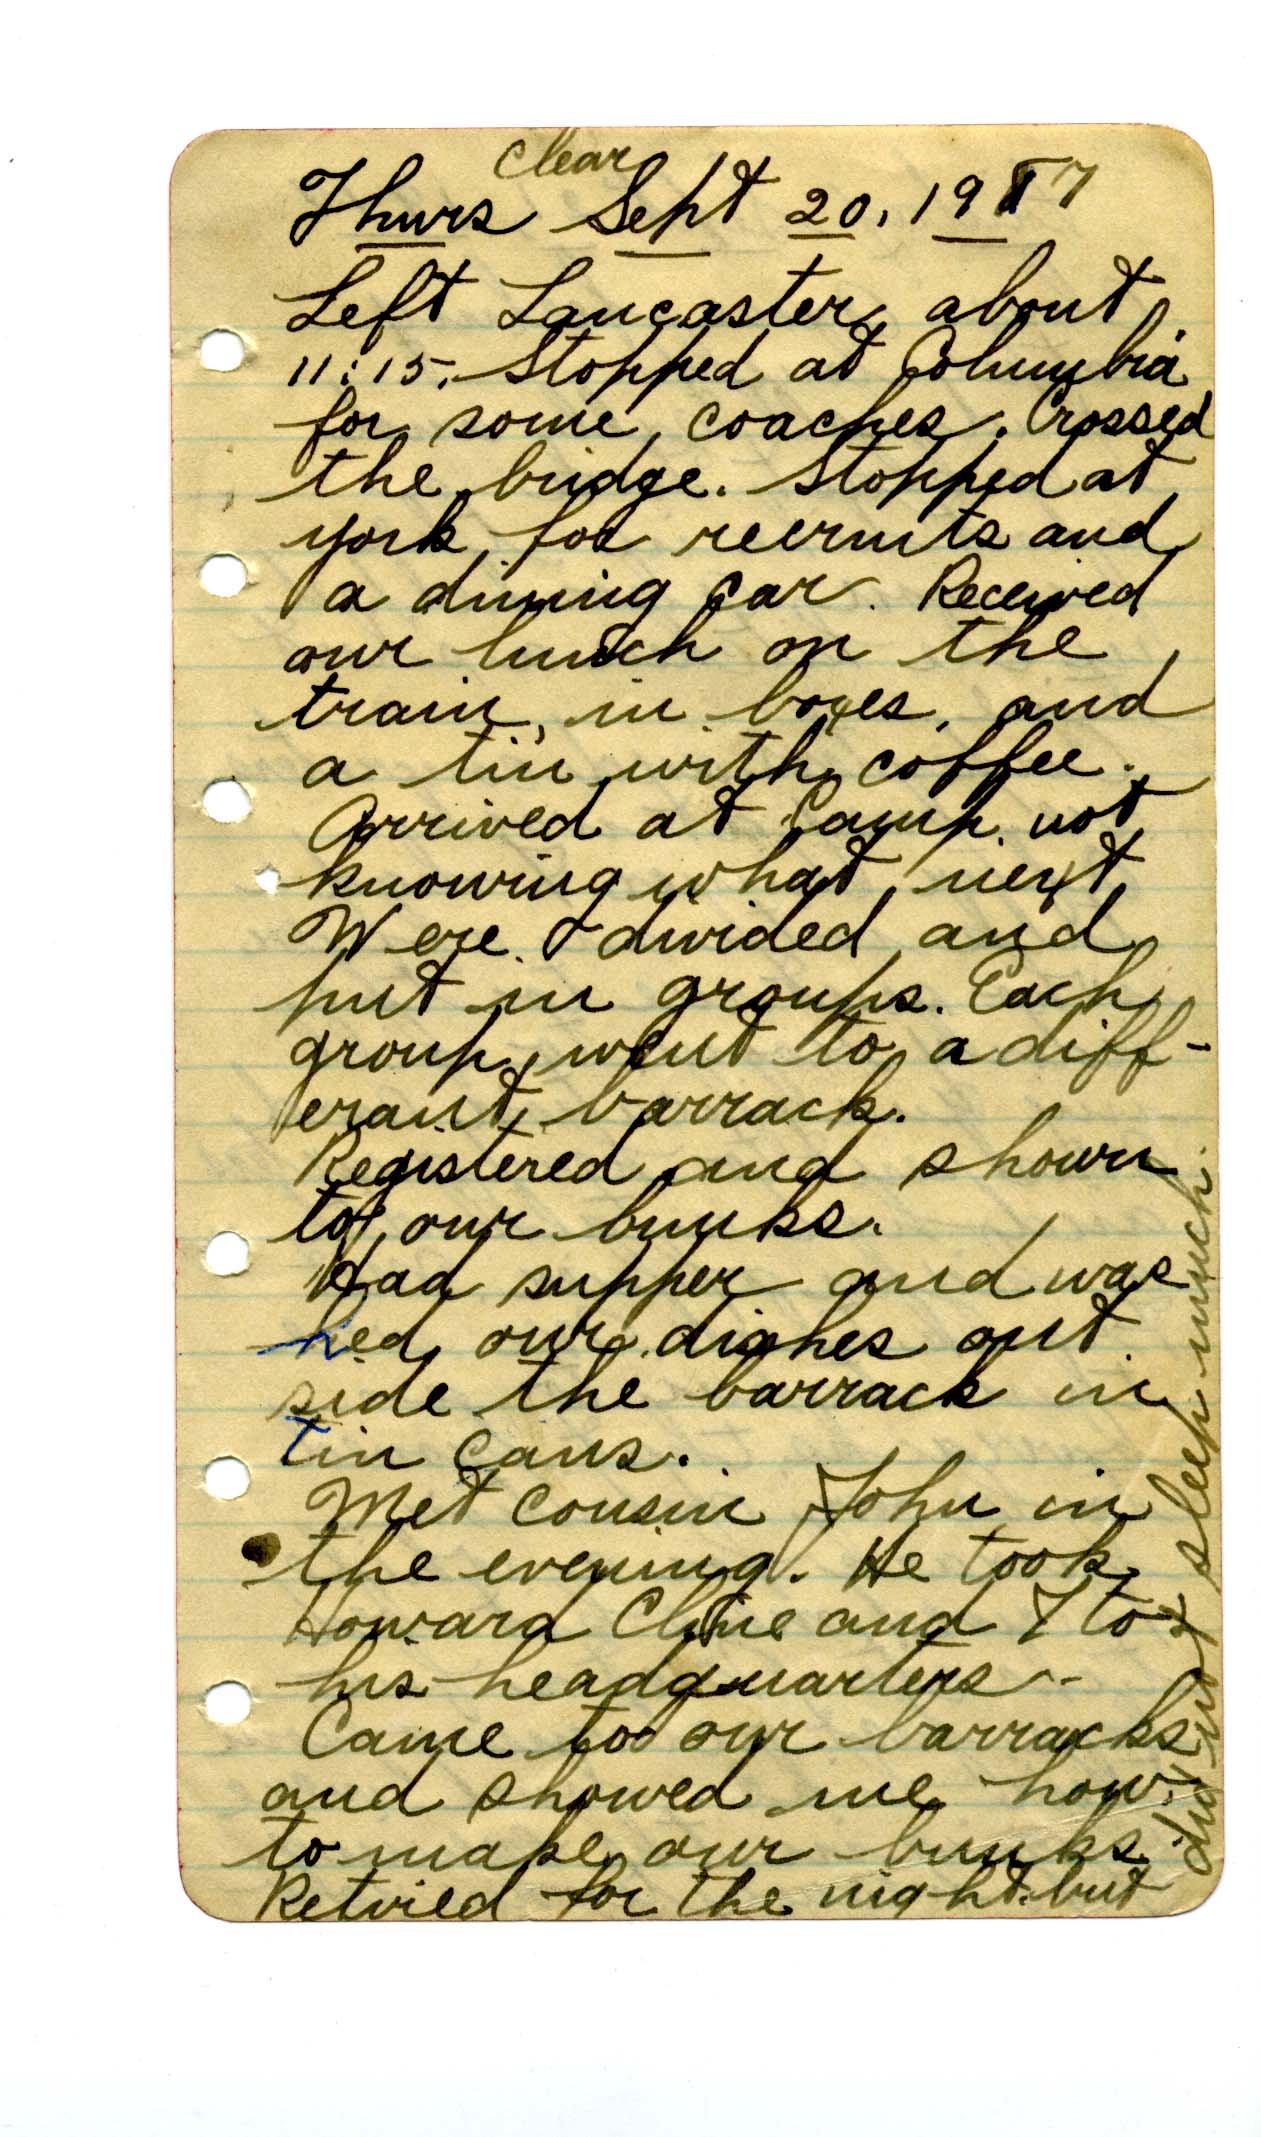 Clear
Thurs Sept 20, 1917
Left Lancaster about
11:15. Stopped at Columbia
for some coaches. Crossed
the bridge. Stopped at
York for recruits and
a dining car. Received
our lunch on the
train, in boxes, and
a tin with coffee.
Arrived at Camp not
knowing what next.
Were divided and
put in groups. Each
group went to a diff-
erant barrack.
Registered and shown
to our bunks.
Had supper and was
hed our dishes out
side the barrack in
tin cans.
Met cousin John in
the evening. He took
Howard Cline and I to
his headquarters.
Came to our barracks
and showed me how
to make our bunks.
Retired for the night. but
did not sleep much.